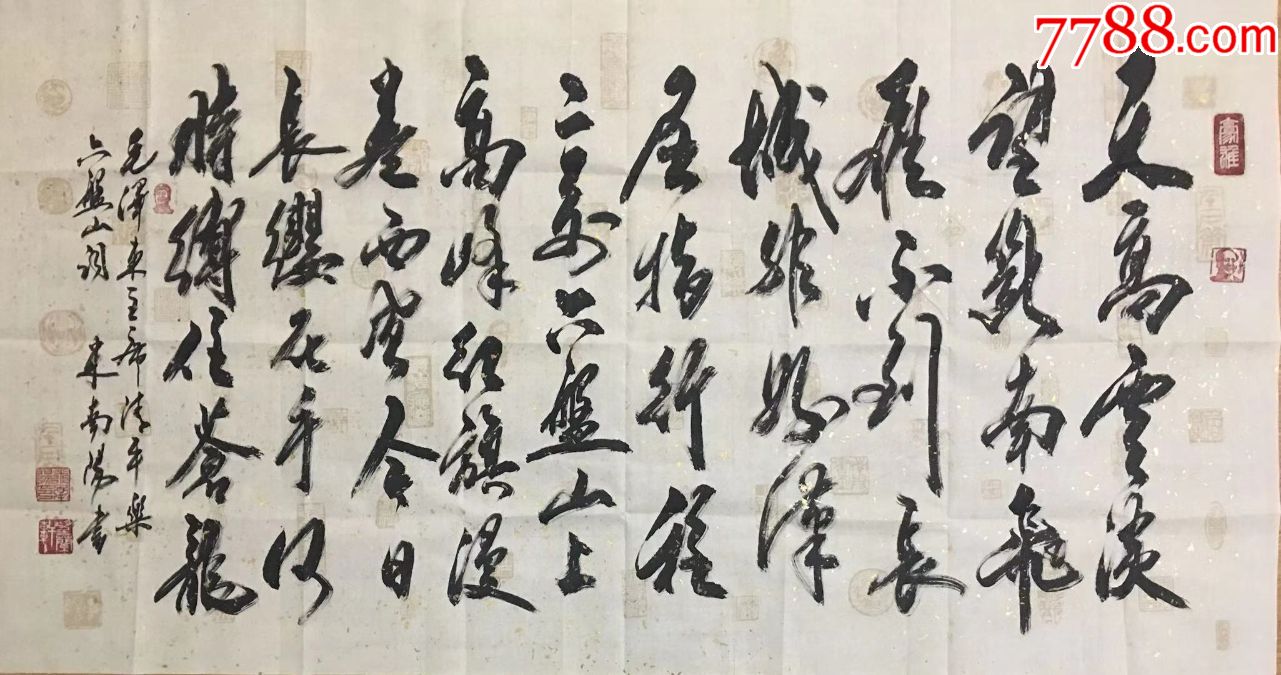 7788.com
天高雲淡
望斷南飛
雁不到長
城非好漢
屈指行程
二万六盤山上
高峰紅旗漫
卷西風今日
長纓在手何
時縛住蒼龍
毛澤東主席清平樂
六盤山詞 南陽書